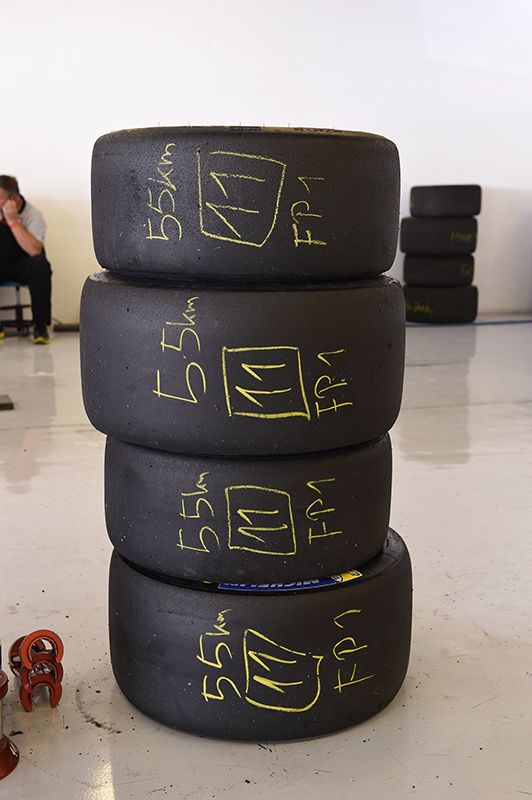 55km 11 FP1
55km 11 FP1
55km 11 FP1
MICHELIN
55km 11 FP1